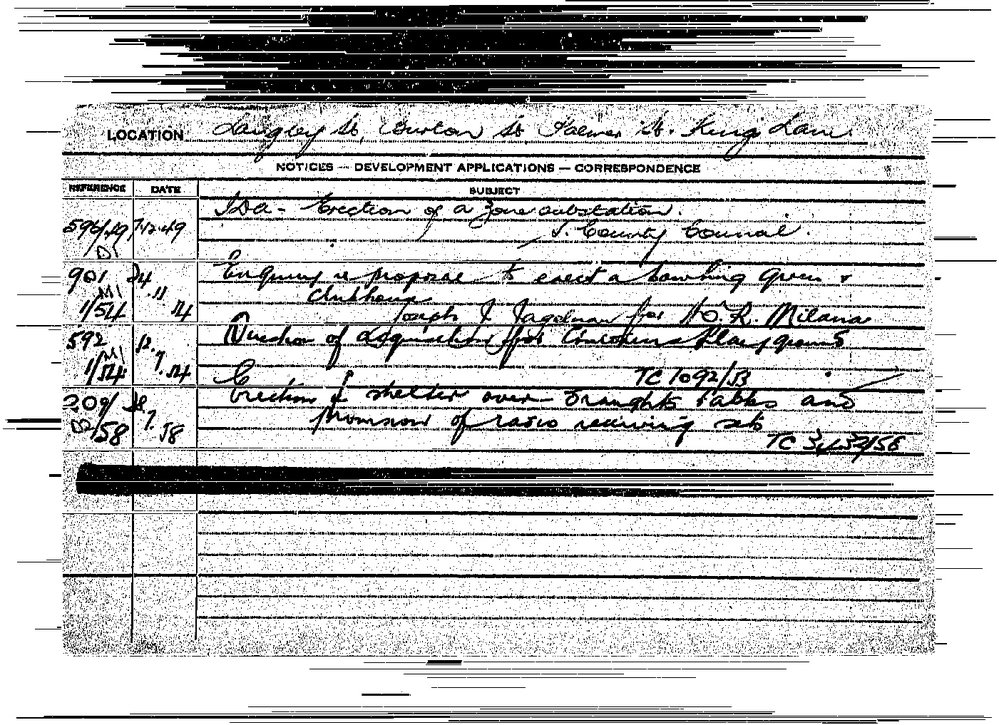 LOCATION Langley St, Burton St Palmer St. King Lane.
NOTICES — DEVELOPMENT APPLICATIONS — CORRESPONDENCE
REFERENCE DATE SUBJECT
IDA - Erection of a zone substation.
596/49 7.12.49 S. County Council
D1
901 24 Enquiry re proposal to erect a bowling green &
M1 .11 Clubhouse
1/54 .54 Joseph J. for H.O.R. Milana
592 12. Question of acquisition for Childrens Playground
M1 7
1/54 .54 TC 1092/53
209/ 28 Erection of shelter over Draughts Tables and
D2/58 7. 58 provision of radio receiving sets
TC